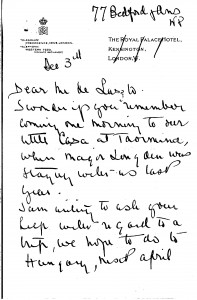 77 Bedford Gdns
W8
THE ROYAL PALACE HOTEL,
KENSINGTON,
LONDON, W.
TELEGRAMS
TELEPHONE
WESTERN
Dec 3rd
Dear Mr de Laszlo
I wonder if you remember
coming one morning to our
little Casa at Taormina,
when Major Longden was
staying with us last
year.
I am writing to ask your
help with regard to a
trip, we hope to do to
Hungary, next April